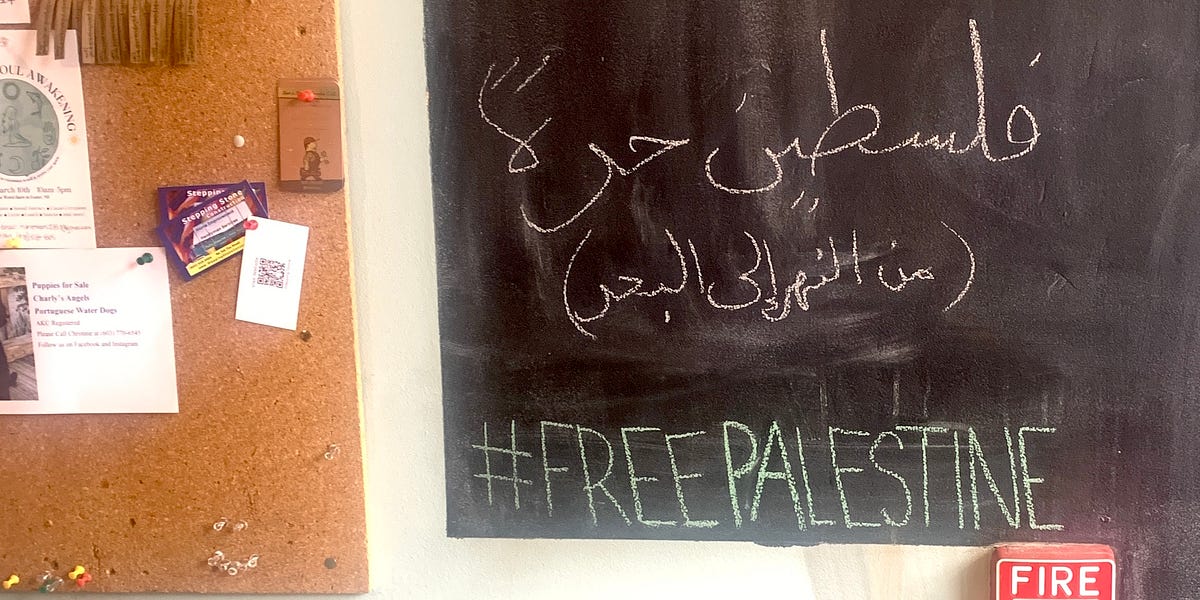 OUL AWAKENING
March 10th 10am-5pm
Puppies for Sale
Charly's Angels
Portuguese Water Dogs
AKC Registered
Please Call Christine at (603) 770-6545
Follow us on Facebook and Instagram
Stepping Stone
Construction
فلسطين حرة
(من النهر إلى البحر)
#FREEPALESTINE
FIRE